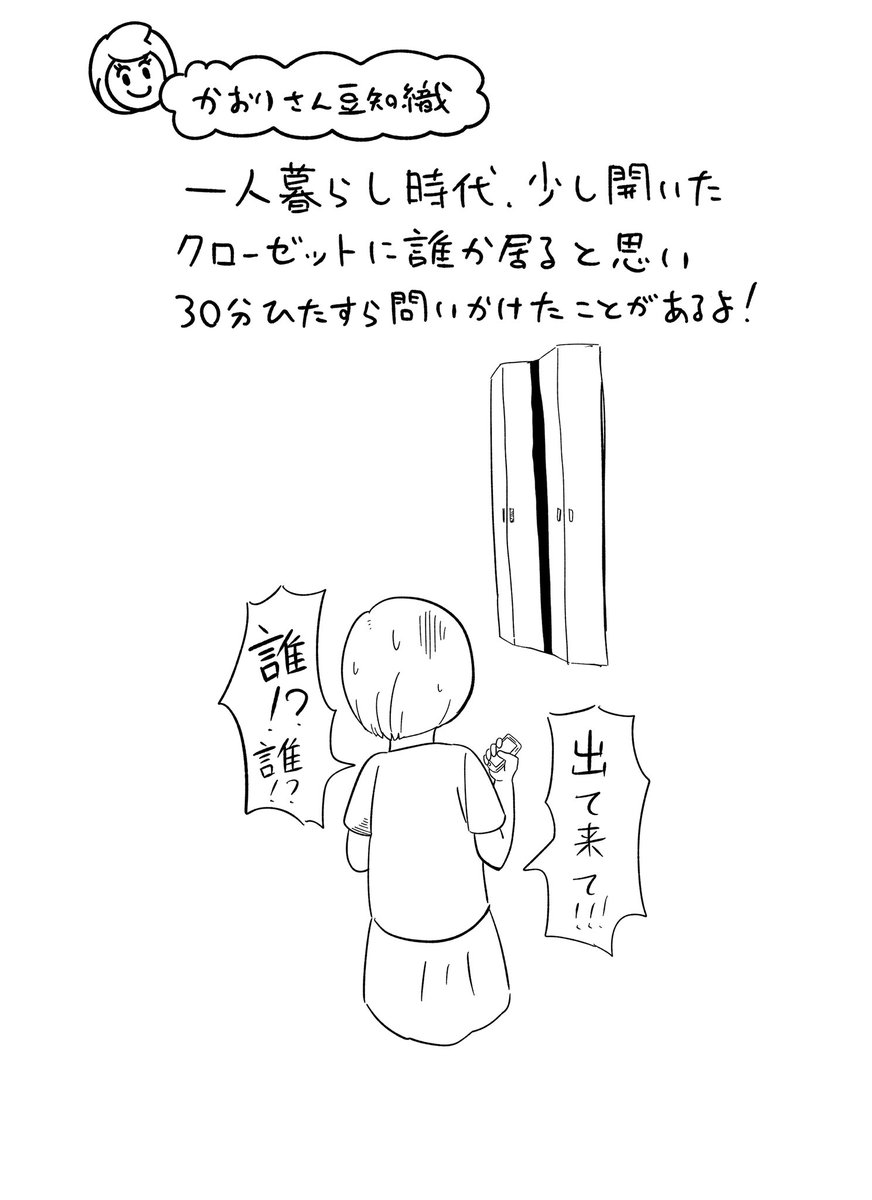 かおりさん豆知織
一人暮らし時代、少し開いた
クローゼットに誰か居ると思い
30分ひたすら問いかけたことがあるよ!
誰!?
誰!?
出て来て!!!